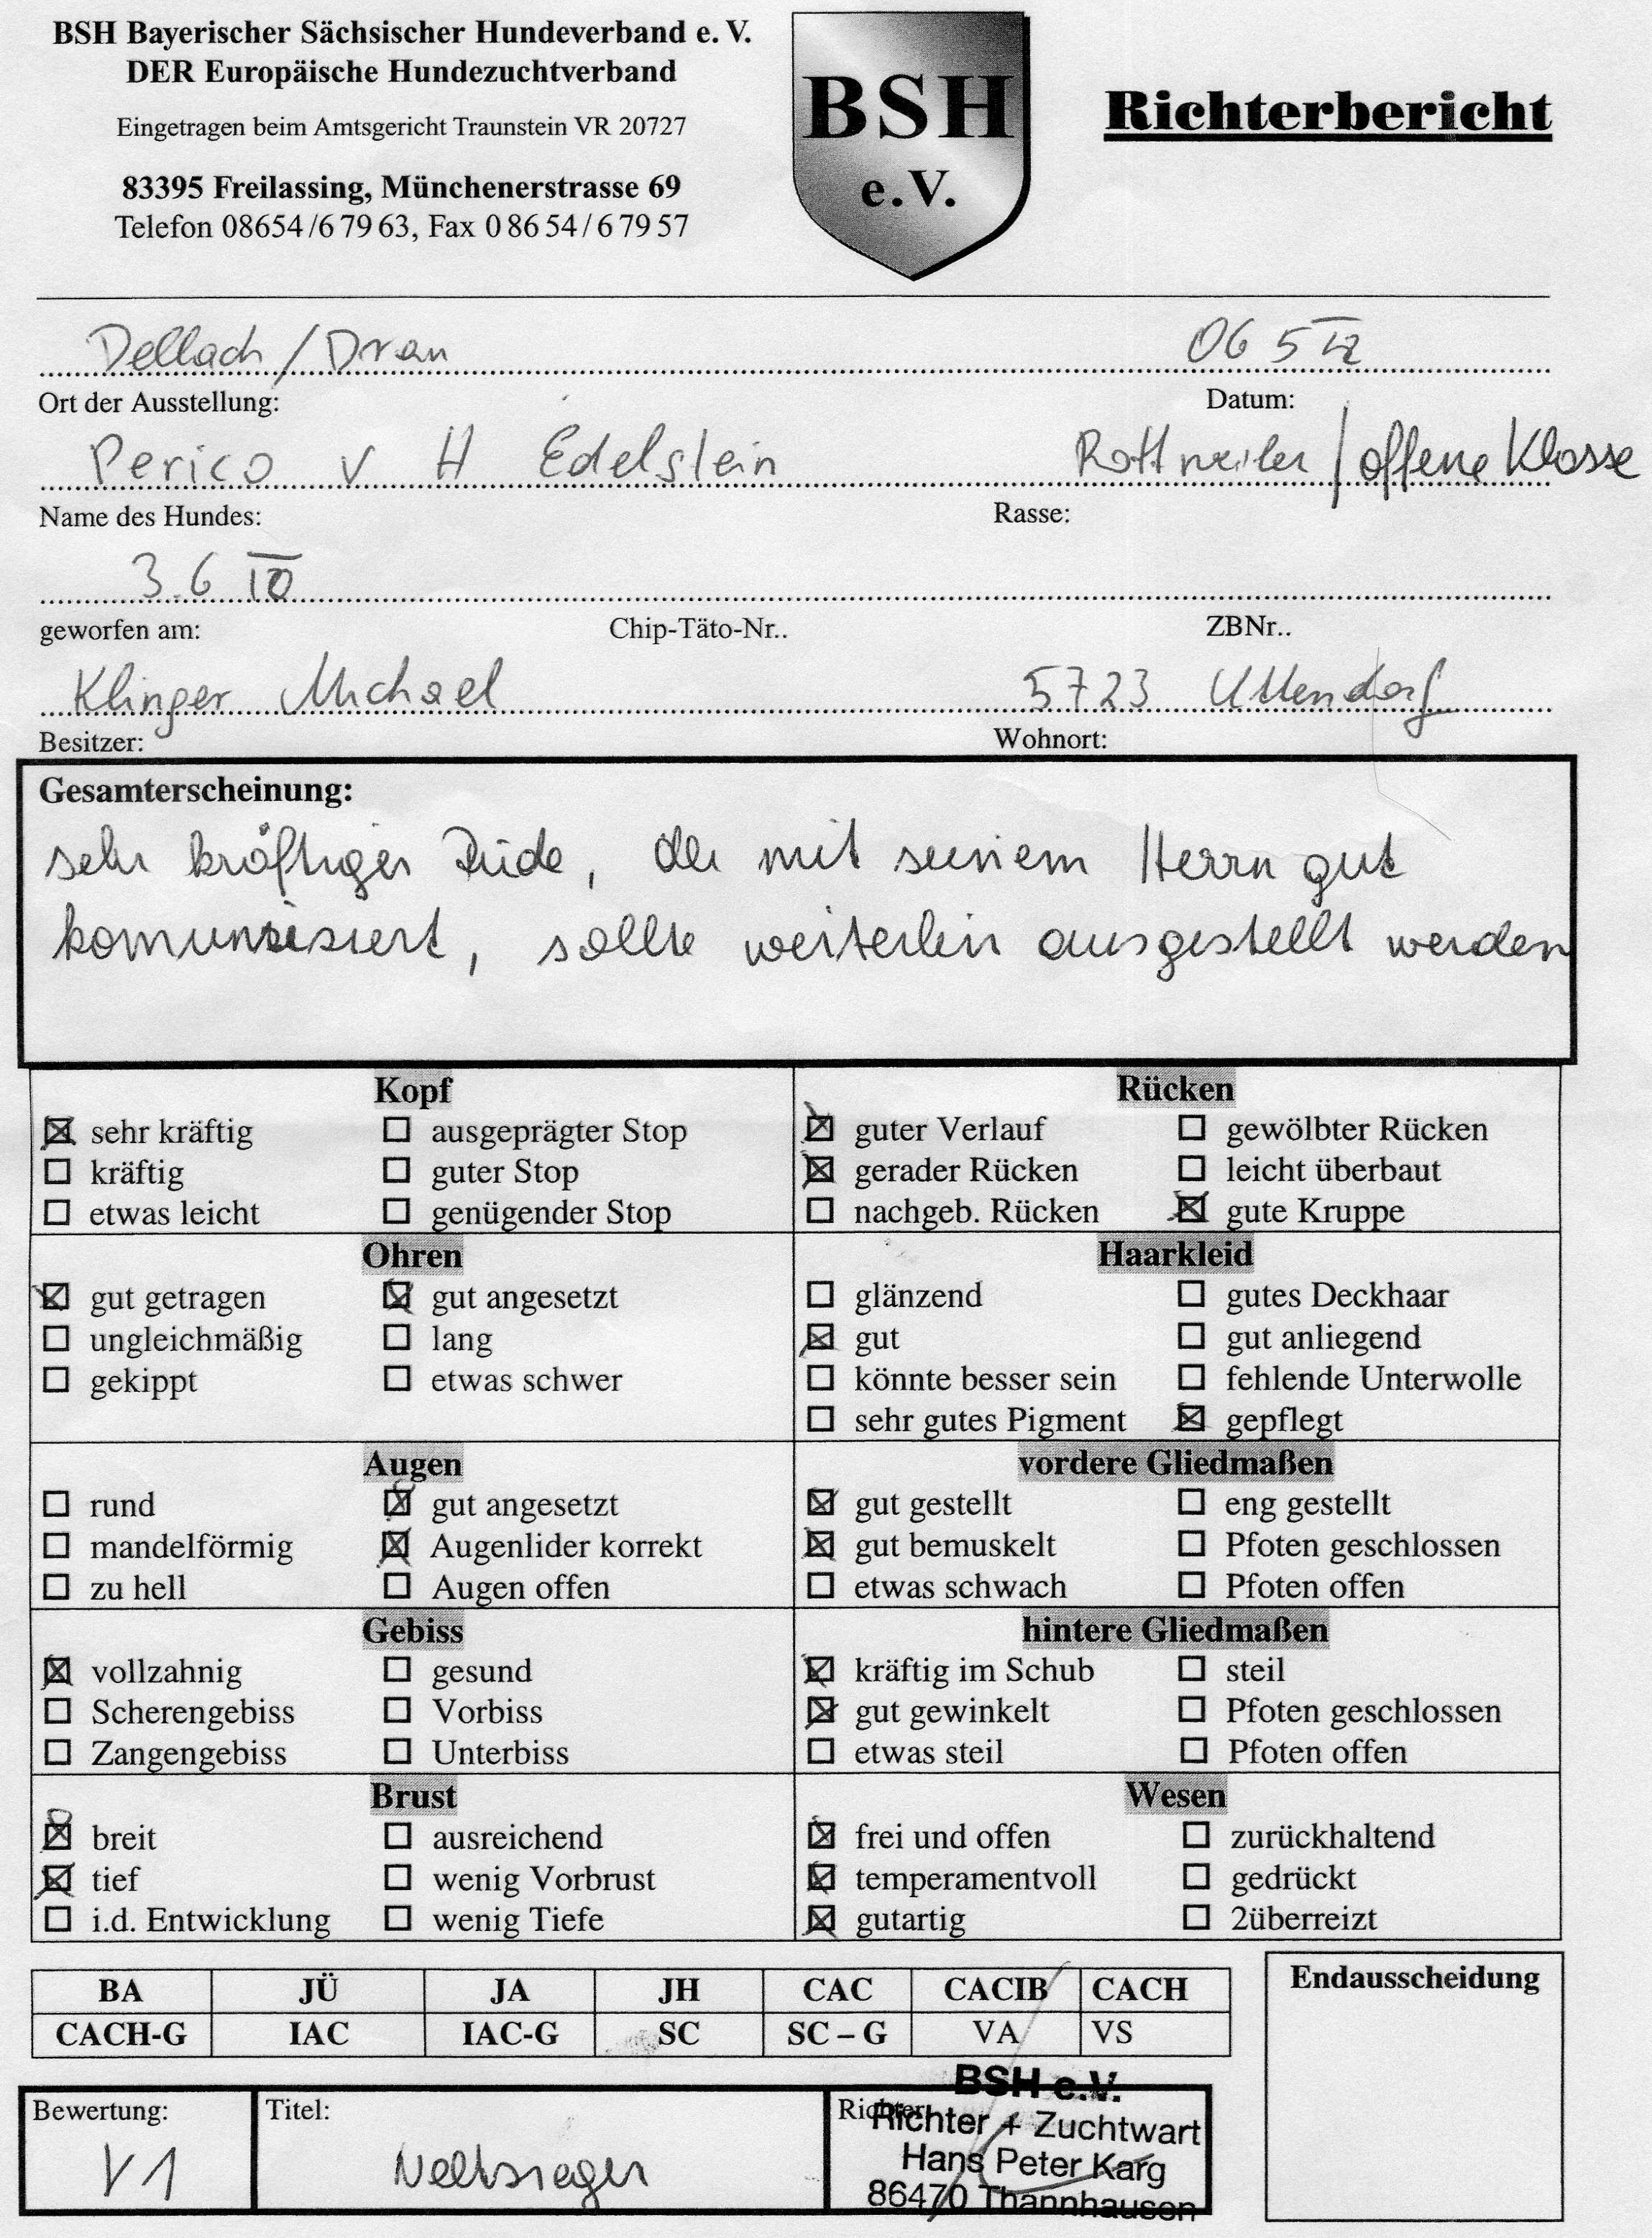 BSH Bayerischer Sächsischer Hundeverband e. V.
DER Europäische Hundezuchtverband
Eingetragen beim Amtsgericht Traunstein VR 20727
83395 Freilassing, Münchenerstrasse 69
Telefon 08654/6 79 63, Fax 0 86 54/6 79 57
BSH
e.V.
Richterbericht
Dellach/Drau 06 5 12
Ort der Ausstellung: Datum:
Perico v H Edelstein Rottweiler/offene Klasse
Name des Hundes: Rasse:
3.6 10
geworfen am: Chip-Täto-Nr.. ZBNr..
Klinger Michael 5723 Uttendorf
Besitzer: Wohnort:
Gesamterscheinung:
sehr kräftiger Rüde, der mit seinem Herrn gut
komuniziert, sollte weiterhin ausgestellt werden
Kopf Rücken
sehr kräftig ausgeprägter Stop guter Verlauf gewölbter Rücken
kräftig guter Stop gerader Rücken leicht überbaut
etwas leicht genügender Stop nachgeb. Rücken gute Kruppe
Ohren Haarkleid
gut getragen gut angesetzt glänzend gutes Deckhaar
ungleichmäßig lang gut gut anliegend
gekippt etwas schwer könnte besser sein fehlende Unterwolle
sehr gutes Pigment gepflegt
Augen vordere Gliedmaßen
rund gut angesetzt gut gestellt eng gestellt
mandelförmig Augenlider korrekt gut bemuskelt Pfoten geschlossen
zu hell Augen offen etwas schwach Pfoten offen
Gebiss hintere Gliedmaßen
vollzahnig gesund kräftig im Schub steil
Scherengebiss Vorbiss gut gewinkelt Pfoten geschlossen
Zangengebiss Unterbiss etwas steil Pfoten offen
Brust Wesen
breit ausreichend frei und offen zurückhaltend
tief wenig Vorbrust temperamentvoll gedrückt
i.d. Entwicklung wenig Tiefe gutartig 2überreizt
BA JÜ JA JH CAC CACIB CACH
CACH-G IAC IAC-G SC SC – G VA VS
Endausscheidung
Bewertung: Titel: Richter:
V1 Weltsieger
BSH e.V.
Richter + Zuchtwart
Hans Peter Karg
86470 Thannhausen